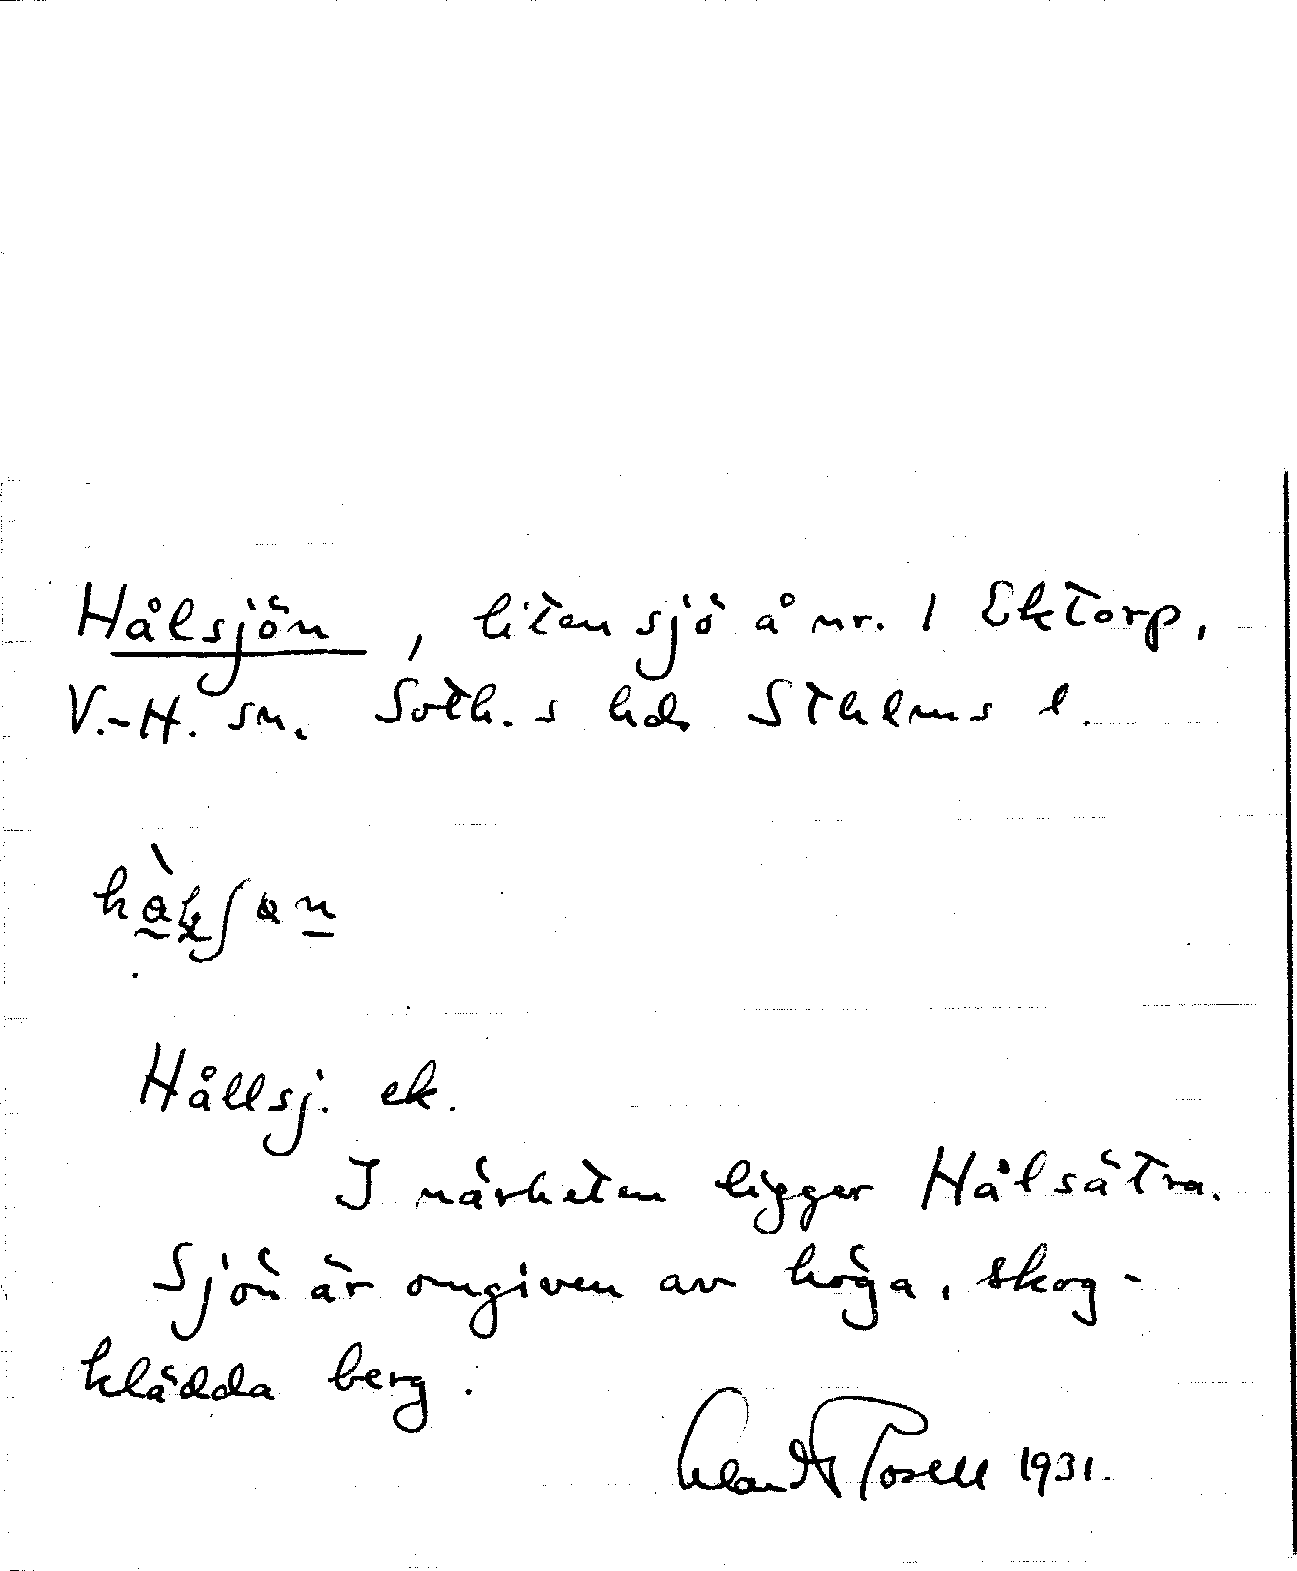 Hålsjön, liten sjö å nr. 1 Ektorp,
V.-H. sn. Soth.s hd. Sthlms l.
Hållsj. ek.
I närheten ligger Hålsätra.
Sjön är omgiven av höga, skog-
klädda berg.
1931.